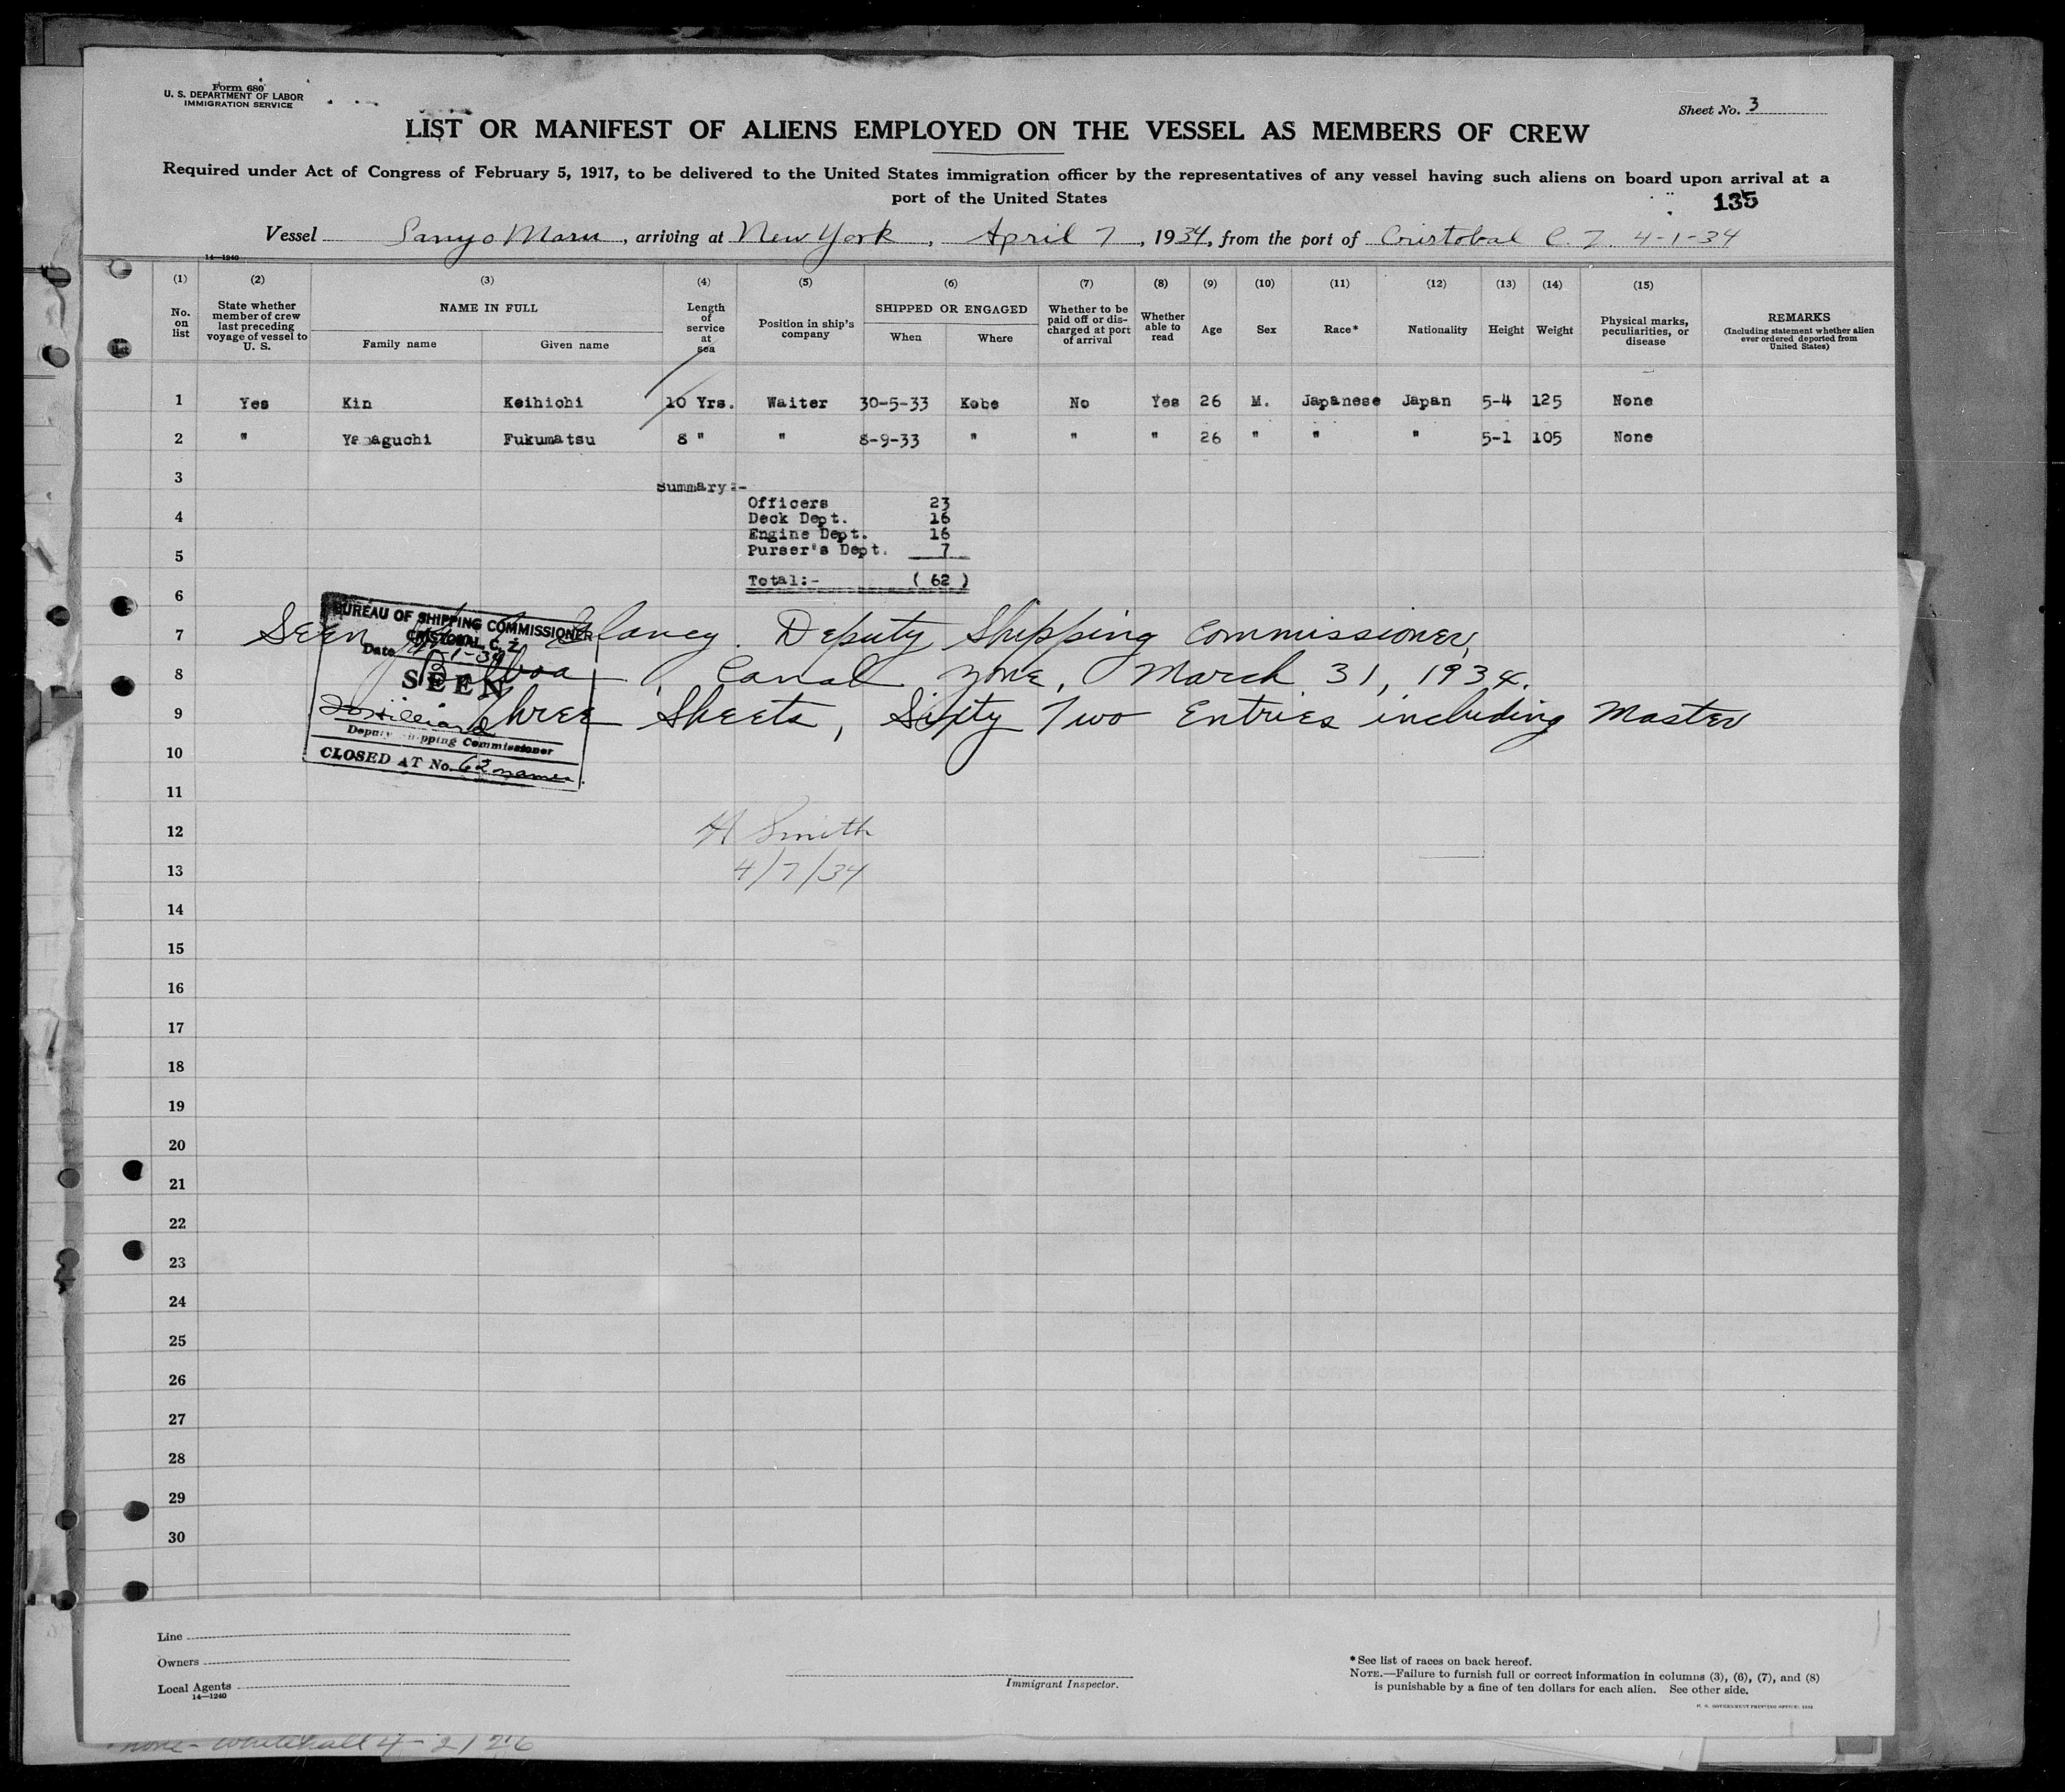 Form 680
U. S. DEPARTMENT OF LABOR
IMMIGRATION SERVICE
Sheet No. 3
LIST OR MANIFEST OF ALIENS EMPLOYED ON THE VESSEL AS MEMBERS OF CREW
Required under Act of Congress of February 5, 1917, to be delivered to the United States immigration officer by the representatives of any vessel having such aliens on board upon arrival at a
port of the United States
135
Vessel Sanyo Maru, arriving at New York, April 7, 1934, from the port of Cristobal C. Z. 4-1-34
14—1240
(1) (2) (3) (4) (5) (6) (7) (8) (9) (10) (11) (12) (13) (14) (15)
No. on list
State whether member of crew last preceding voyage of vessel to U. S.
NAME IN FULL
Family name Given name
Length of service at sea
Position in ship's company
SHIPPED OR ENGAGED
When Where
Whether to be paid off or discharged at port of arrival
Whether able to read
Age
Sex
Race*
Nationality
Height
Weight
Physical marks, peculiarities, or disease
REMARKS
(Including statement whether alien ever ordered deported from United States)
1 Yes Kin Keihichi 10 Yrs. Waiter 30-5-33 Kobe No Yes 26 M. Japanese Japan 5-4 125 None
2 " Yamaguchi Fukumatsu 8 " " 8-9-33 " " " 26 " " " 5-1 105 None
3
Summary:-
Officers 23
4 Deck Dept. 16
Engine Dept. 16
5 Purser's Dept. 7
Total:- (62)
6
BUREAU OF SHIPPING COMMISSIONER
CRISTOBAL, C. Z.
Date 4-1-34
SEEN
Deputy Shipping Commissioner
CLOSED AT No. 62 names.
7 Seen Clancy. Deputy Shipping Commissioner,
8 Balboa, Canal Zone, March 31, 1934.
9 Three Sheets, Sixty Two Entries including Master
10
11
12 H Smith
13 4/7/34
14
15
16
17
18
19
20
21
22
23
24
25
26
27
28
29
30
Line
Owners
Local Agents
14—1240
Immigrant Inspector.
*See list of races on back hereof.
NOTE.—Failure to furnish full or correct information in columns (3), (6), (7), and (8)
is punishable by a fine of ten dollars for each alien. See other side.
U. S. GOVERNMENT PRINTING OFFICE: 1932